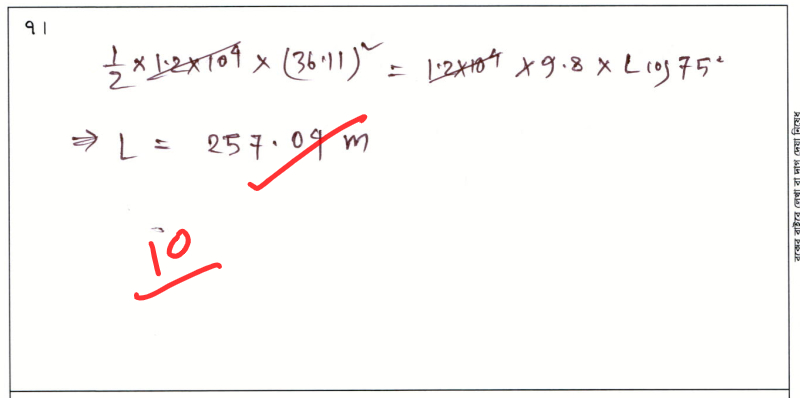 91
1/2 × 1.2×10⁴ × (36.11)² = 1.2×10⁴ × 9.8 × L cos 75°
⇒ L = 257.04 m
10
বক্সের বাইরে লেখা বা দাগ দেয়া নিষেধ